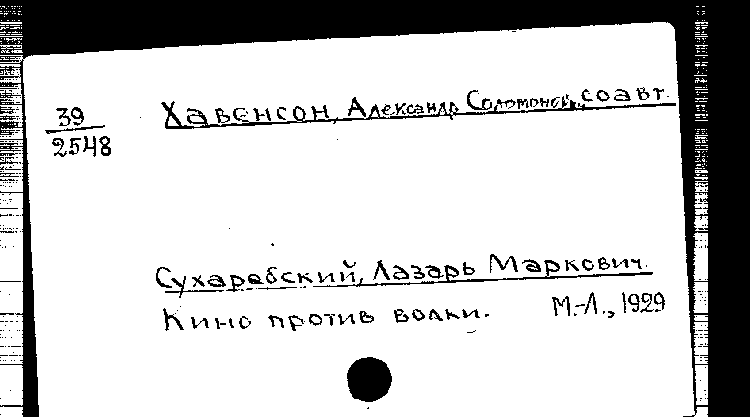 39
2548
Хавенсон, Александр Соломонов., соавт.
Сухаребский, Лазарь Маркович.
Кино против водки. М.-Л., 1929